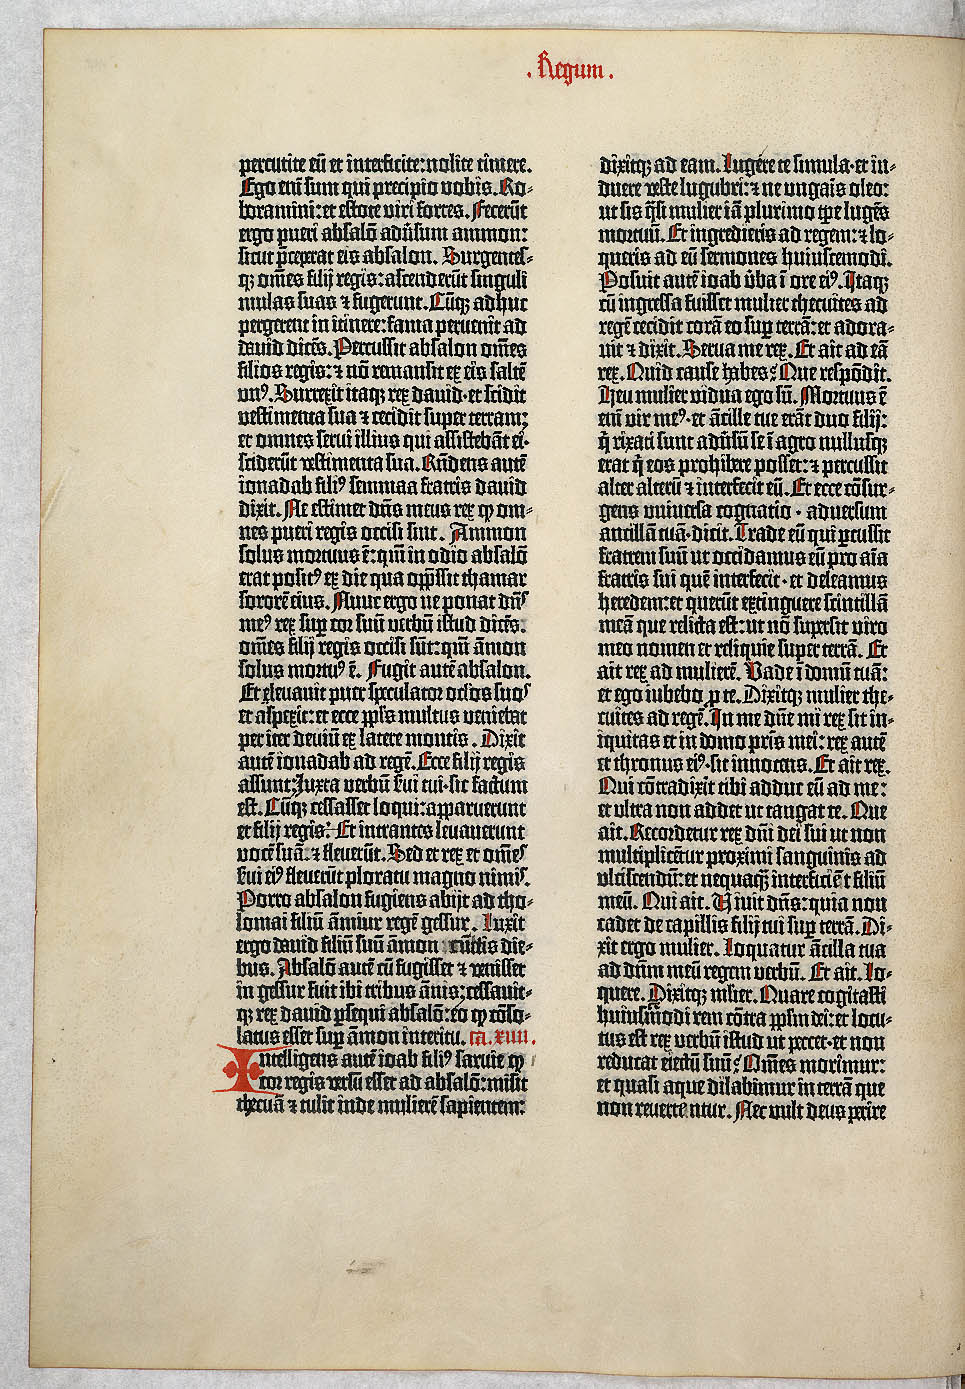 . Regum .
percutite eū et interficite: nolite timere.
Ego eni sum qui precipio vobis. Ro-
boramini: et estote viri fortes. Fecerūt
ergo pueri absalō adūsum ammon:
sicut p̄ceperat eis absalon. Surgentes-
qꝫ om̄es filij regis: ascenderūt singuli
mulas suas ⁊ fugerunt. Cūqꝫ adhuc
pergerent in itinere: fama peruenit ad
dauid dicēs. Percussit absalon om̄es
filios regis: ⁊ nō remansit ex eis saltē
vnꝰ. Surrexit itaqꝫ rex dauid· et scidit
vestimenta sua ⁊ cecidit super terram:
et omnes serui illius qui assistebāt ei·
sciderūt vestimenta sua. Rn̄dens autē
ionadab filiꝰ semmaa fratris dauid
dixit. Ne estimet dn̄s meus rex ꝙ om-
nes pueri regis occisi sint. Ammon
solus mortuus ē: qm̄ in odio absalō
erat positꝰ ex die qua opp̄ssit thamar
sororē eius. Nunc ergo ne ponat dn̄s
meꝰ rex suꝑ cor suū verbū istud dicēs:
om̄es filij regis occisi sūt: qm̄ āmon
solus mortuꝰ ē. Fugit autē absalon.
Et eleuauit puer speculator oclōs suos
et aspexit: et ecce pp̄ls multus veniebat
per iter deuiū ex latere montis. Dixit
autē ionadab ad regē. Ecce filij regis
assunt: Juxta verbū ẜui tui· sic factum
est. Cūqꝫ cessasset loqui: apparuerunt
et filij regis: Et intrantes leuauerunt
vocē suā: ⁊ fleuerūt. Sed et rex et om̄es
ẜui eiꝰ fleuerūt ploratu magno nimis.
Porro absalon fugiens abijt ad tho-
lomai filiū āmiur regē gessur. Luxit
ergo dauid filiū suū āmon cunctis die-
bus. Absalō autē cū fugisset ⁊ venisset
in gessur fuit ibi tribus ānis: cessauit-
qꝫ rex dauid ꝑsequi absalō: eo ꝙ cōso-
latus esset suꝑ āmon interitu. ca. xiiii.
Intelligens autē ioab filiꝰ saruie ꝙ
cor regis versū esset ad absalō: misit
thecuā ⁊ tulit inde mulierē sapientem:
dixitqꝫ ad eam. Lugere te simula· et in-
duere veste lugubri: ⁊ ne vngaris oleo:
ut sis q̄si mulier iā plurimo tp̄e lugēs
mortuū. Et ingredieris ad regem: ⁊ lo-
queris ad eū sermones huiuscemodi.
Posuit autē ioab v̄ba ī ore eiꝰ. Itaqꝫ
cū ingressa fuisset mulier thecuites ad
regē cecidit corā eo suꝑ terrā: et adora-
uit ⁊ dixit. Serua me rex. Et ait ad eā
rex. Quid cause habes? Que respōdit.
Heu mulier vidua ego sū. Mortuus ē
eni vir meꝰ· et ācille tue erāt duo filij:
q̄ rixati sunt adūsū se ī agro nullusqꝫ
erat q̄ eos prohibere posset: ⁊ percussit
alter alterū ⁊ interfecit eū. Et ecce cōsur-
gens vniuersa cognatio · aduersum
ancillā tuā· dicit. Trade eū qui ꝑcussit
fratrem suū ut occidamus eū pro aīa
fratris sui quē interfecit· et deleamus
heredem: et querūt extinguere scintillā
meā que relicta est: ut nō suꝑsit viro
meo nomen et reliquie super terrā. Et
ait rex ad mulierē. Vade ī domū tuā:
et ego iubebo ꝓ te. Dixitqꝫ mulier the-
cuites ad regē. In me dn̄e mi rex sit in-
iquitas et in domo pris mei: rex autē
et thronus eiꝰ· sit innocens. Et ait rex.
Qui cōtradixit tibi adduc eū ad me:
et vltra non addet ut tangat te. Que
ait. Recordetur rex dn̄i dei sui ut non
multiplicētur proximi sanguinis ad
vlciscendū: et nequaq̄ interficiēt filiū
meū. Qui ait. Viuit dn̄s: quia non
cadet de capillis filij tui suꝑ terrā. Di-
xit ergo mulier. Loquatur ācilla tua
ad dn̄m meū regem verbū. Et ait. Lo-
quere. Dixitqꝫ mlier. Quare cogitasti
huiusmōdi rem cōtra pp̄lm dei: et locu-
tus est rex verbū istud ut peccet· et non
reducat eiectū suū? Om̄es morimur:
et quasi aque dilabimur in terrā que
non reuertentur. Nec vult deus perire